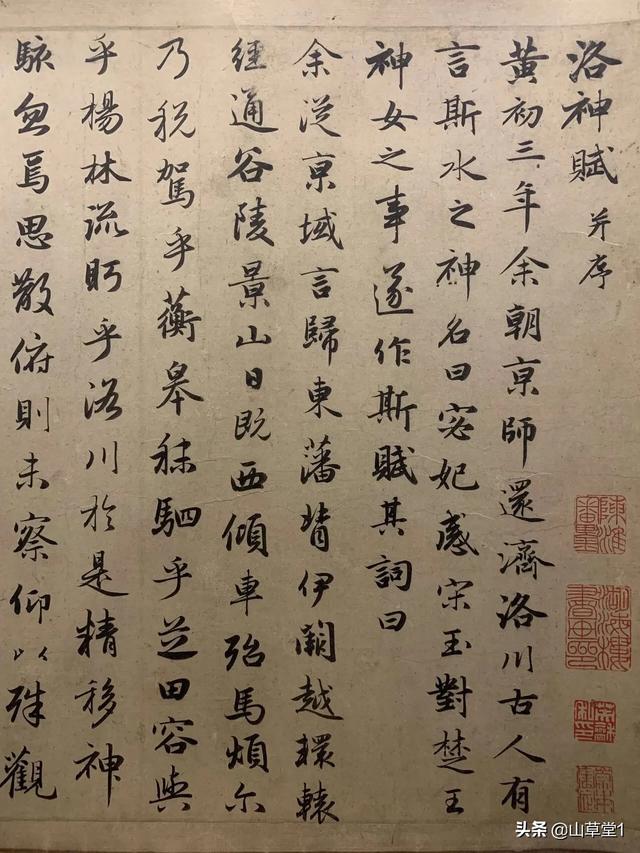 洛神賦 并序
黄初三年余朝京師還濟洛川古人有
言斯水之神名曰宓妃感宋玉對楚王
神女之事遂作斯賦其詞曰
余從京域言歸東藩背伊闕越轘轅
經通谷陵景山日既西傾車殆馬煩尔
乃税駕乎蘅皋秣駟乎芝田容與
乎楊林流眄乎洛川於是精移神
駭忽焉思散俯則未察仰以殊觀
头条 @山草堂1